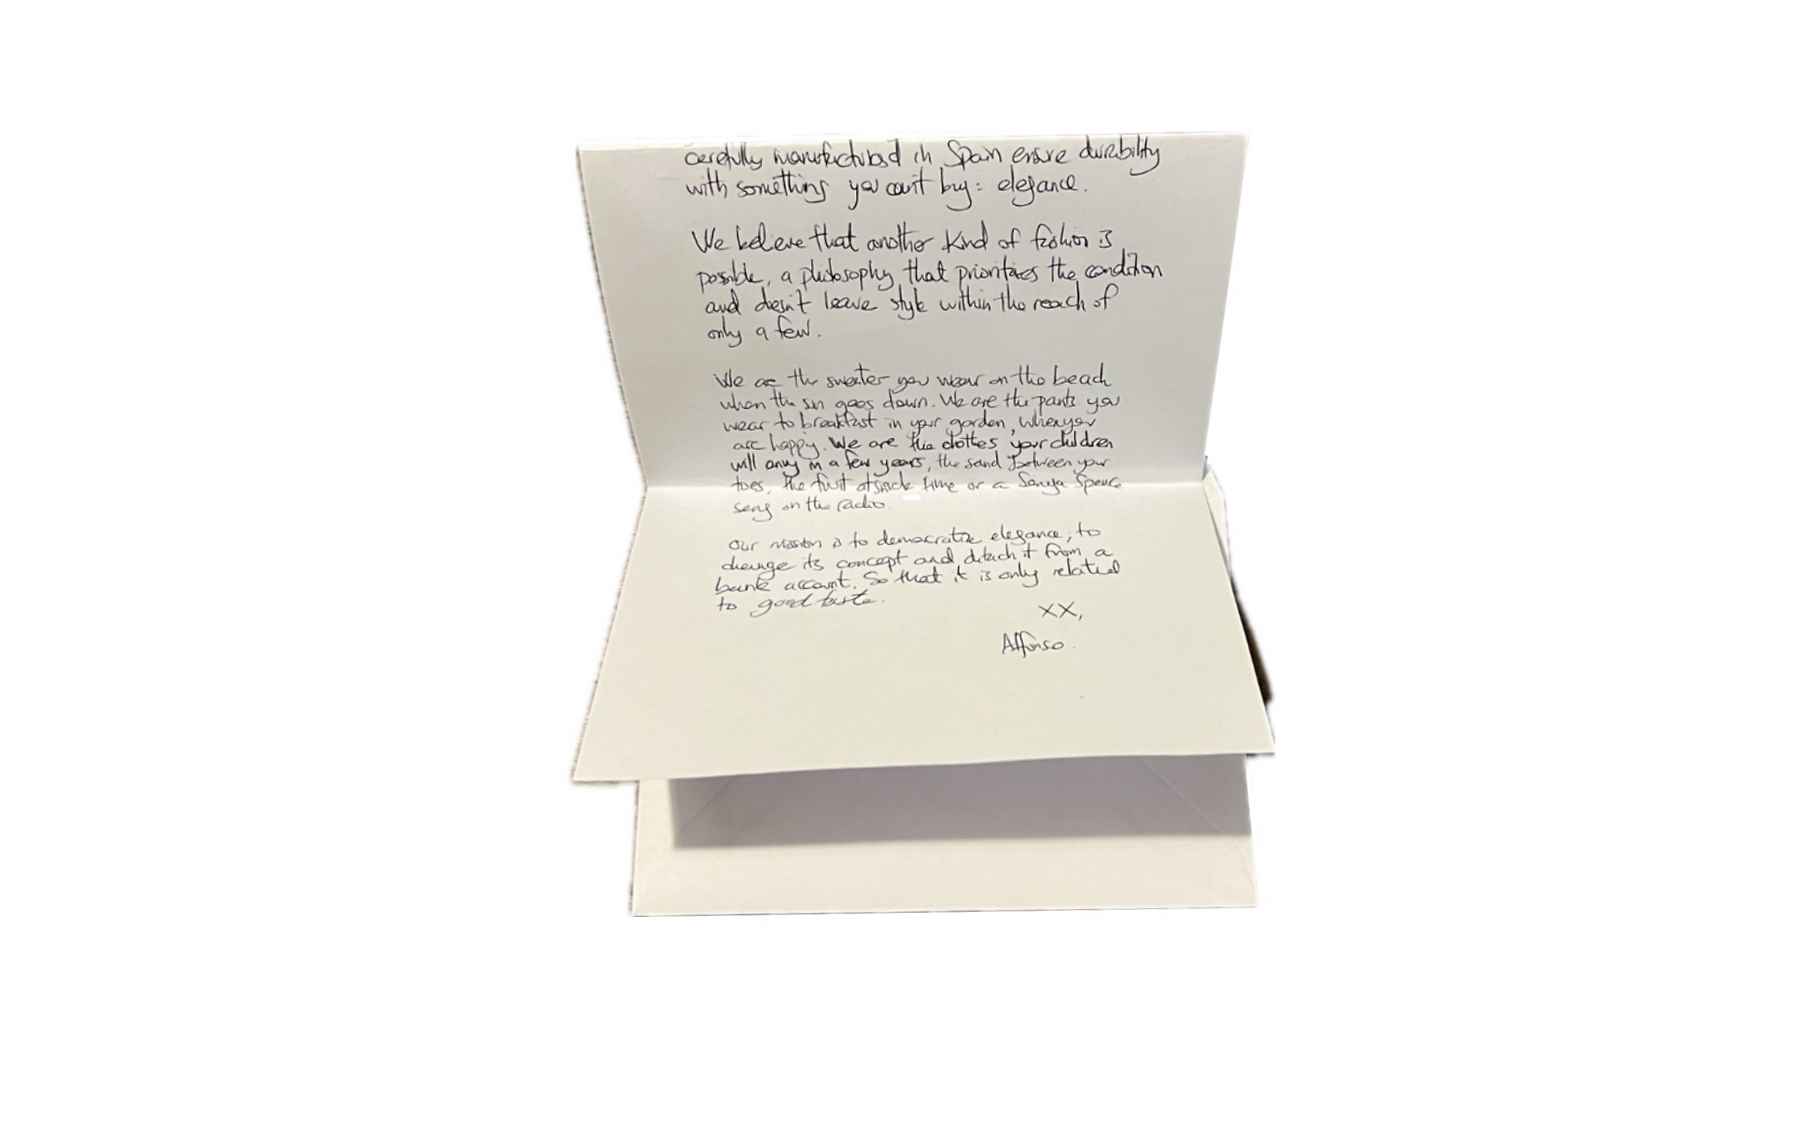 carefully manufactured in Spain ensure durability
with something you can't buy: elegance.
We believe that another kind of fashion is
possible, a philosophy that prioritizes the condition
and doesn't leave style within the reach of
only a few.
We are the sweater you wear on the beach
when the sun goes down. We are the pants you
wear to breakfast in your garden, when you
are happy. We are the clothes your children
will envy in a few years, the sand between your
toes, the first time or a Sonya Spence
song on the radio.
Our mission is to democratize elegance, to
change its concept and detach it from a
bank account. So that it is only related
to good taste.
XX,
Alfonso.